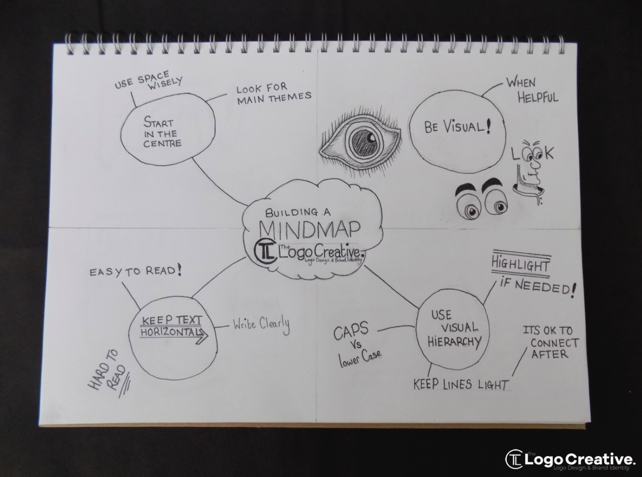 USE SPACE
WISELY
LOOK FOR
MAIN THEMES
START
IN THE
CENTRE
WHEN
HELPFUL
BE VISUAL!
LOOK
BUILDING A
MINDMAP
The
Logo Creative.
Logo Design & Brand Identity
EASY TO READ!
KEEP TEXT
HORIZONTAL
Write Clearly
HARD TO
READ
HiGHLIGHT
iF NEEDED!
USE
VISUAL
HiERARCHY
CAPS
Vs
lower Case
ITS OK TO
CONNECT
AFTER
KEEP LINES LIGHT
The
Logo Creative.
Logo Design & Brand Identity